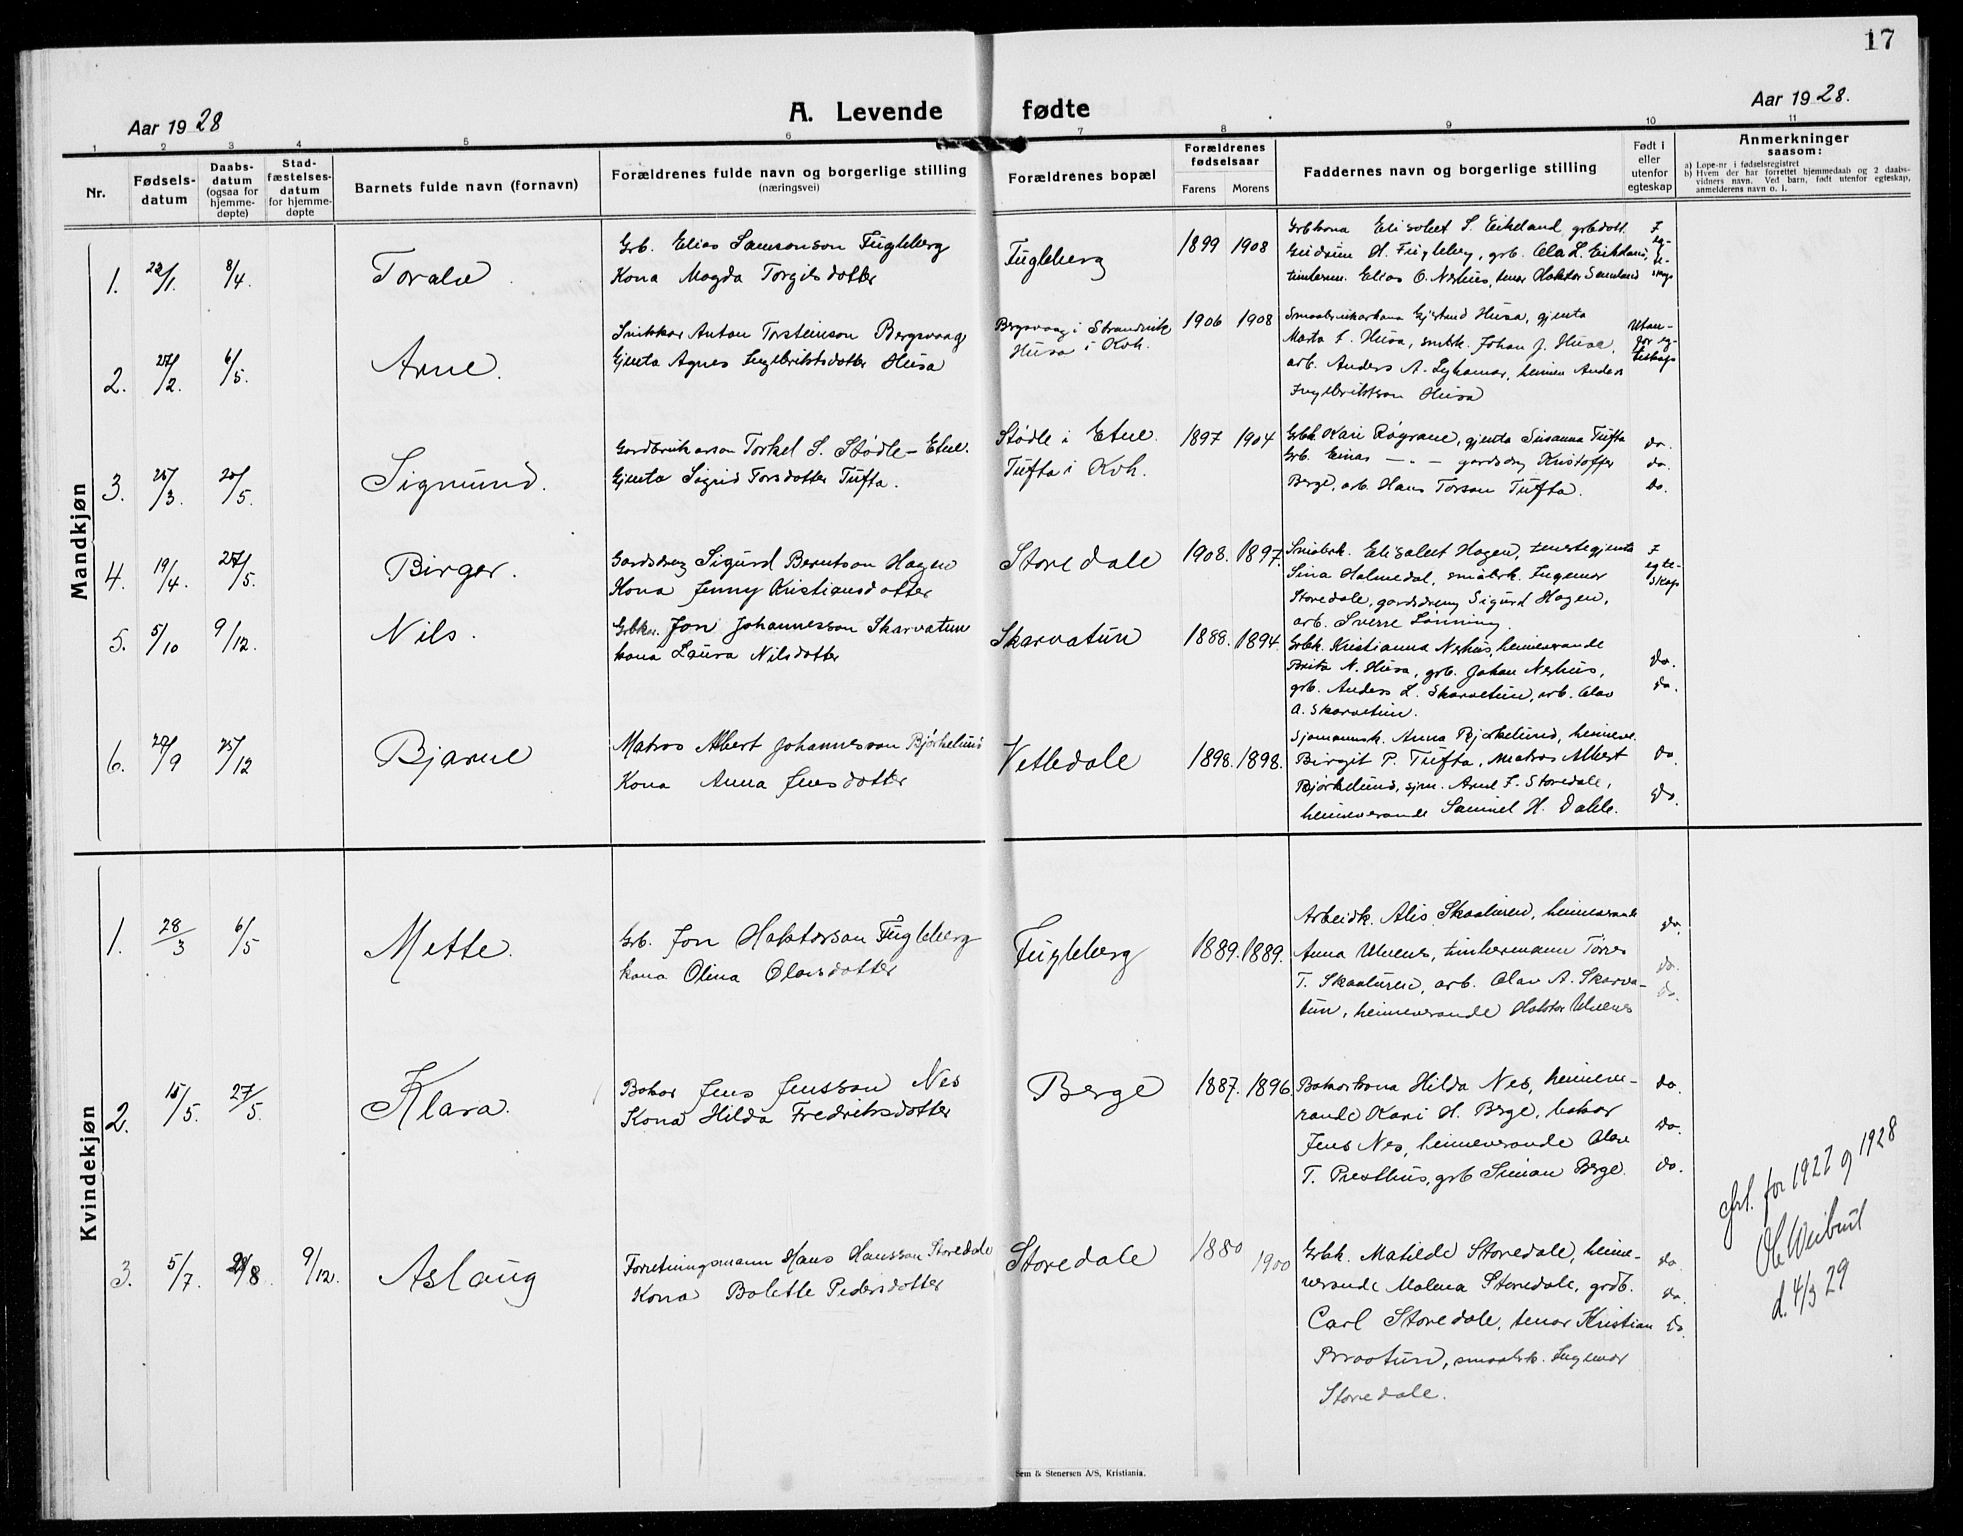 17
Aar 1928
A. Levende fødte
Aar 1928.
1 2 3 4 5 6 7 8 9 10 11
Nr.
Fødsels-datum
Daabs-datum (ogsaa for hjemme-døpte)
Stad-fæstelses-datum for hjemme-døpte
Barnets fulde navn (fornavn)
Forældrenes fulde navn og borgerlige stilling (næringsvei)
Forældrenes bopæl
Forældrenes fødselsaar
Farens Morens
Faddernes navn og borgerlige stilling
Født i eller utenfor egteskap
Anmerkninger saasom:
a) Løpe-nr i fødselsregistret
b) Hvem der har forrettet hjemmedaab og 2 daabs-
vidners navn. Ved barn, født utenfor egteskap,
anmelderens navn o. l.
Mandkjøn
1. 22/1. 8/4. Toralv
Grb. Elias Samsonson Fugleberg
Kona Magda Torgilsdotter
Fugleberg 1899 1908
Grbkona Elisabet S. Eikeland, grbdott.
Gudrun H. Fugleberg, grb. Ola L. Eikeland,
timberm. Elias O. Neshus, tenar Haktor Samland
I eg-te-skap
2. 27/2. 6/5. Arne.
Snikkar Anton Torsteinson Bergsvaag
Gjenta Agnes Ingebriktsdotter Husa
Bergsvaag i Strandvik
Husa i Kvh.
1906 1908
Smaabrukarkona Gjertrud Husa, gjenta
Marta I. Husa, smbk. Johan J. Husa,
arb. Anders A. Lyhamar, heimev Anders
Ingebriktson Husa
Utan-for eg-teskap
3. 25/3. 20/5. Sigmund.
Gardbrukarson Torkel S. Stødle - Etne.
Gjenta Sigrid Torsdotter Tufta.
Stødle i Etne.
Tufta i Kvh.
1897 1904
Grbk Kari Røyrane, gjenta Susanna Tufta
Grb. Einar - " - gardsdrg Kristoffer
Berge, arb. Hans Torson Tufta.
do.
do.
do.
4. 19/4. 27/5. Birger.
Gardsdreng Sigurd Berntson Hagen
Kona Jenny Kristiansdotter
Storedale 1908. 1897.
Smabrk. Elisabet Hagen, tenestegjenta
Sina Holmedal, småbrk. Ingemar
Storedale, gardsdreng Sigurd Hagen,
arb. Sverre Lønning.
I egte-skap
5. 5/10 9/12. Nils.
Grbkr. Jon Johannesson Skarvatun
kona Laura Nilsdotter
Skarvatun 1888. 1894.
Grbk. Kristianna Neshus, heimeverande
Brita N. Husa, grb. Johan Neshus,
grb. Anders L. Skarvetun, arb. Olav
A. Skarvetun.
do.
do.
6. 29/9 25/12 Bjarne
Matros Albert Johannesson Bjørkelund
Kona Anna Jensdotter
Vetledale 1898. 1898.
Sjømannsk. Anna Bjørkelund, heimeve.
Birgit P. Tufta, Matros Albert
Bjørkelund, sjm. Arne F. Storedale,
heimeverande Samuel H. Dahle.
do.
do.
Kvindekjøn
1. 28/3 6/5 Mette.
Grb. Jon Haktorson Fugleberg
kona Olina Olavsdotter
Fugleberg 1889. 1889.
Arbeidk. Alis Skaaluren, heimeverande
Anna Ulvenes, timbermann Torres
T. Skaaluren, arb. Olav A. Skarva-
tun, heimeverande Haktor Ulvenes
do.
do.
do.
2. 15/5. 27/5. Klara.
Bakar Jens Jensson Nes
Kona Hilda Fredriksdotter
Berge 1887. 1896.
Bakarkona Hilda Nes, heimeve-
rande Kari H. Berge, bakar
Jens Nes, heimeverande Olav
T. Presthus, grb Simon Berge.
do.
do.
do.
3. 5/7. 8 9/12. Aslaug
Forretningsmann Hans Hansson Storedale
Kona Bolette Pedersdotter
Storedale 1880 1900
Grbk. Matilde Storedale, heime-
verande Malena Storedale, grdb.
Carl Storedale, tenar Kristian
Braatun, smaabrk. Ingemar
Storedale.
do.
do.
do.
for 1927 og 1928
d. 4/3 29
Sem & Stenersen A/S, Kristiania.